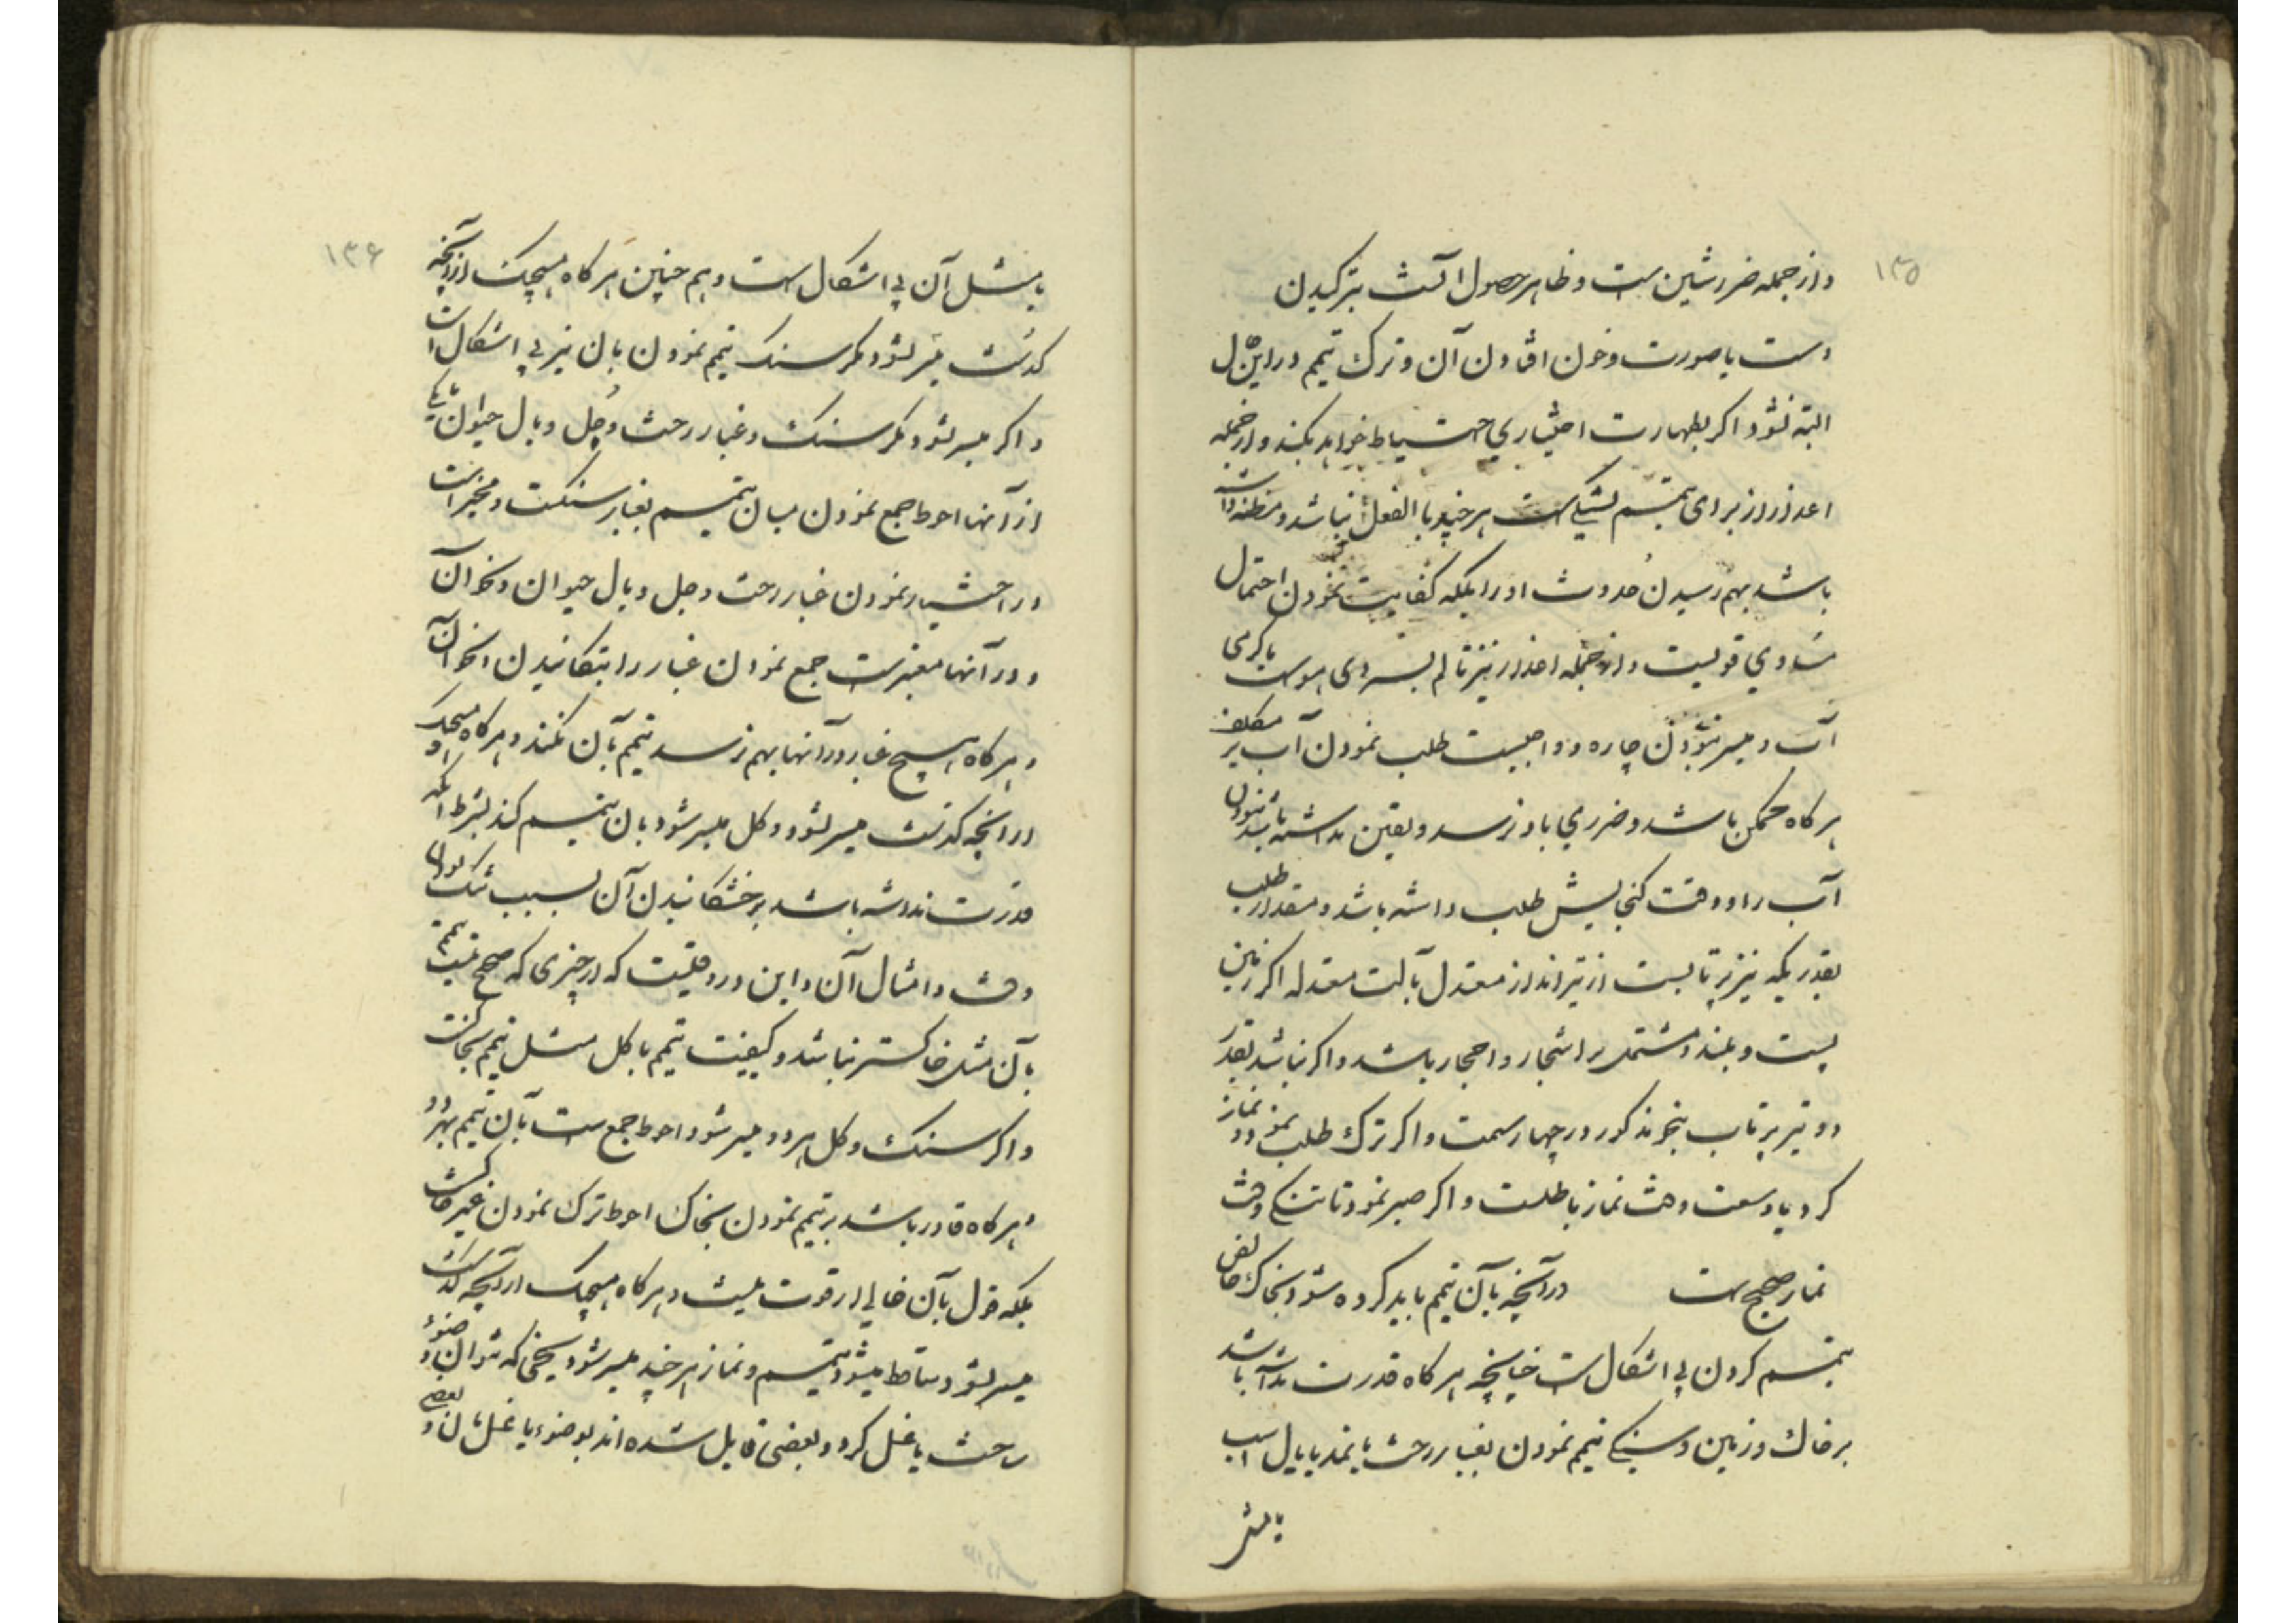 ۱۳۵
و از جمله ضرر شین است و ظاهر حصول آنست بترکیدن
دست یا صورت و خون افتادن آن و ترک تیمم در این حال
البته نشود اگر بطهارت اختیاری احتیاط خواهد بکند و از جمله
اعذار از برای تیمم تشنگیست هر چند بالفعل نباشد و مظنه داشته
باشد بهم رسیدن حدوث او را بلکه کفایت نمودن احتمال
مساوی قویست و از جمله اعذار نیز تالم بسردی هواست یا گرمی
آب و میسر نبودن چاره و واجبست طلب نمودن آب بر مکلف
هر گاه ممکن باشد و ضرری باو نرسد و یقین نداشته باشد نبودن
آب را و وقت گنجایش طلب داشته باشد و مقدار طلب
بقدر یکه تیر پرتابست از تیرانداز معتدل بآلت معتدله اگر زمین
پست و بلند و مشتمل بر اشجار و احجار باشد و اگر نباشد بقدر
دو تیر پرتاب بنحو مذکور در چهار سمت و اگر ترک طلب نمود و نماز
کرد با وسعت وقت نماز باطلست و اگر صبر نمود تا تنگی وقت
نماز صحیح است در آنچه بآن تیمم باید کرده شود بخاک خالص
تیمم کردن بی اشکال است چنانچه هر گاه قدرت نداشته باشد
بر خاک و زمین و سنگ تیمم نمودن بغبار رخت یا نمد یا یال اسب
یا مثل
۱۳۶
یا مثل آن بی اشکال است و هم چنین هر گاه هیچیک از آنچه
گذشت میسر نشود مگر سنگ تیمم نمودن بآن نیز بی اشکال است
و اگر میسر نشود مگر سنگ و غبار رخت و جل و یال حیوان یا یکی
از آنها احوط جمع نمودن میان تیمم بغبار و سنگست و مخیر است
در اختیار نمودن غبار رخت و جل و یال حیوان و نحو آن
و در آنها معتبر است جمع نمودن غبار را بتکانیدن و نحو آن
و هر گاه هیچ غبار در آنها بهم نرسد تیمم بآن نکند و هر گاه هیچیک
از آنچه گذشت میسر نشود و گل میسر شود بآن تیمم کند بشرط آنکه
قدرت نداشته باشد بر خشکانیدن آن بسبب تنگ بودن
وقت و امثال آن و این در وقتیست که از چیزی که صحیح نیست تیمم
بآن مثل خاکستر نباشد و کیفیت تیمم با گل مثل تیمم بخاکست
و اگر سنگ و گل هر دو میسر شود احوط جمع است بآن تیمم بهر دو
و هر گاه قادر باشد بر تیمم نمودن بخاک احوط ترک نمودن غیر خاکست
بلکه قول بآن خالی از قوت نیست و هر گاه هیچیک از آنچه گذشت
میسر نشود ساقط میشود تیمم و نماز هر چند میسر شود یخی که توان وضوء
ساخت یا غسل کرد و بعضی قایل شده اند بوضوء یا غسل بآن و بعضی